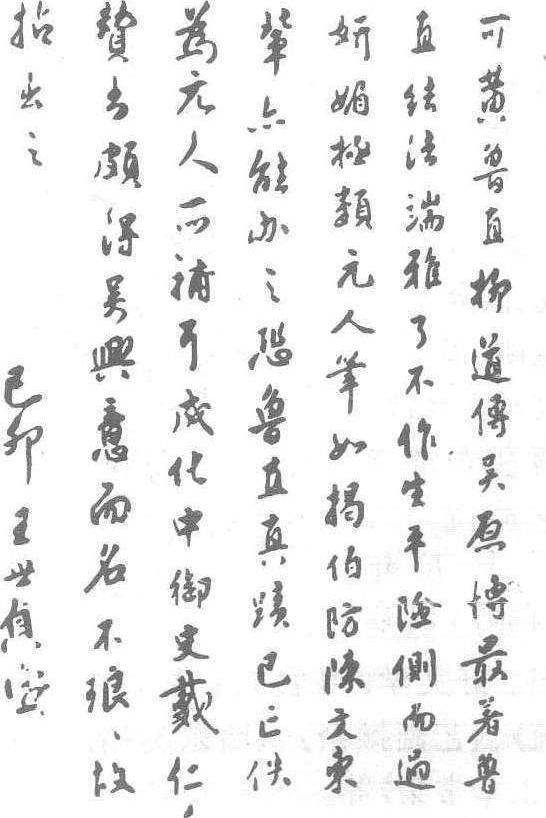 可黄魯直柳道傳吴原博最著魯
直結法端雅了不作生平險側而過
妍媚極類元人筆如揭伯防陳文東
輩亦能办之恐魯直真蹟已亡佚
為元人所補耳成化中御史戴仁
贊書頗得吴興意而名不琅、故
拈出之
己卯王世貞